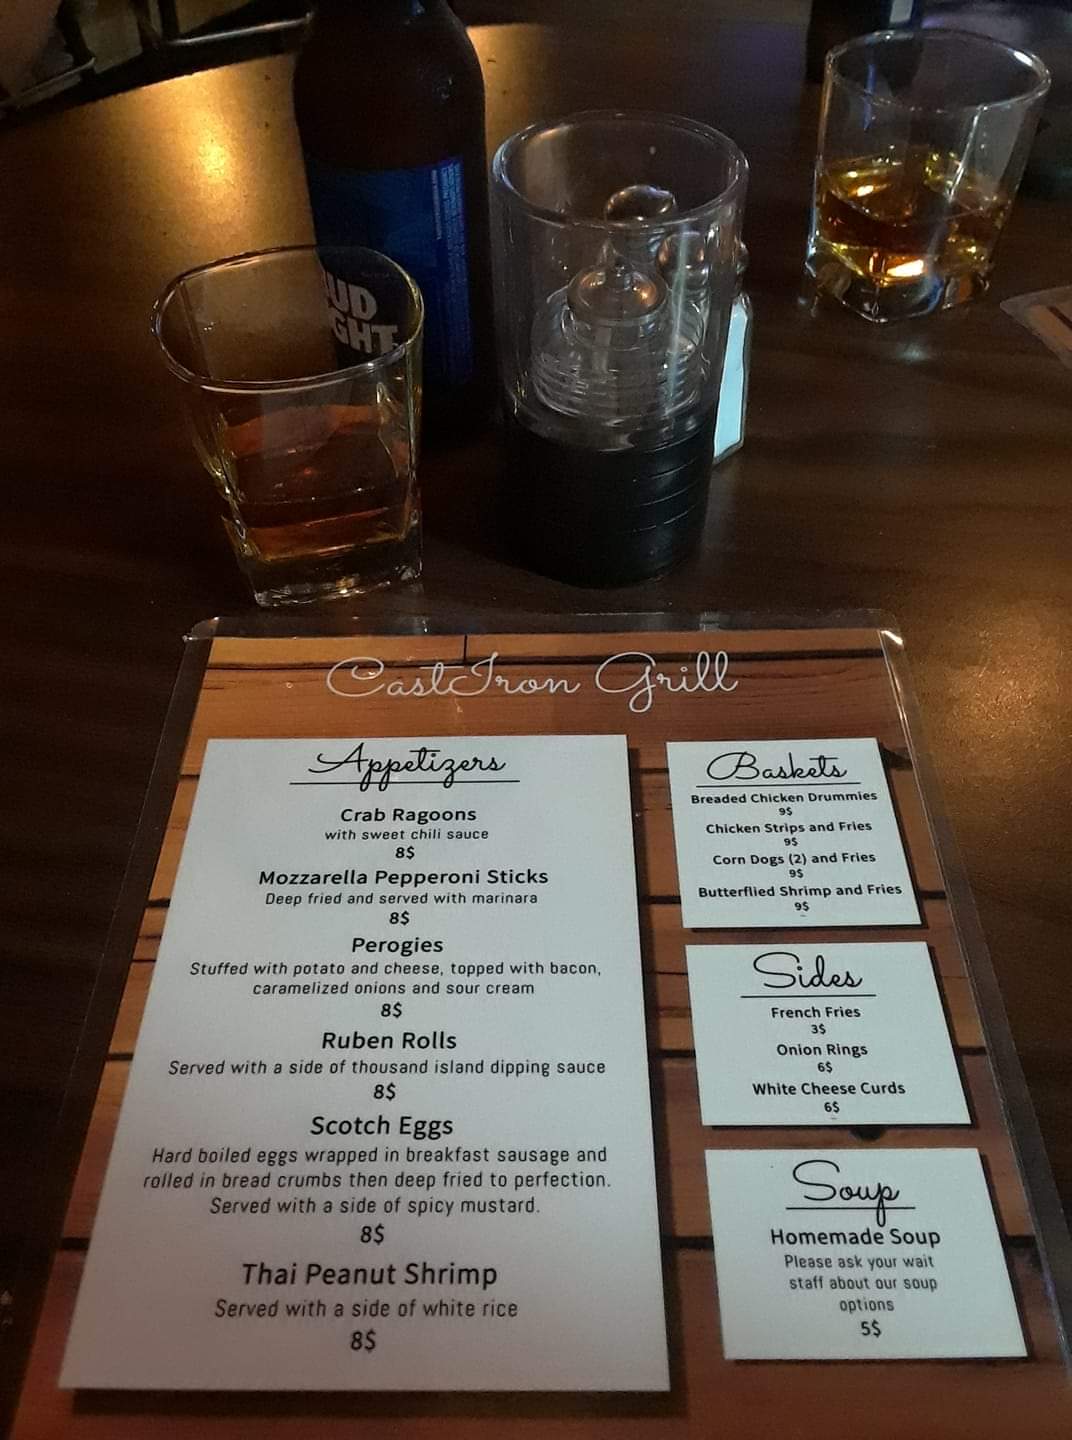 UD
GHT
CastIron Grill
Appetizers
Crab Ragoons
with sweet chili sauce
8$
Mozzarella Pepperoni Sticks
Deep fried and served with marinara
8$
Perogies
Stuffed with potato and cheese, topped with bacon,
caramelized onions and sour cream
8$
Ruben Rolls
Served with a side of thousand island dipping sauce
8$
Scotch Eggs
Hard boiled eggs wrapped in breakfast sausage and
rolled in bread crumbs then deep fried to perfection.
Served with a side of spicy mustard.
8$
Thai Peanut Shrimp
Served with a side of white rice
8$
Baskets
Breaded Chicken Drummies
9$
Chicken Strips and Fries
9$
Corn Dogs (2) and Fries
9$
Butterflied Shrimp and Fries
9$
Sides
French Fries
3$
Onion Rings
6$
White Cheese Curds
6$
Soup
Homemade Soup
Please ask your wait
staff about our soup
options
5$